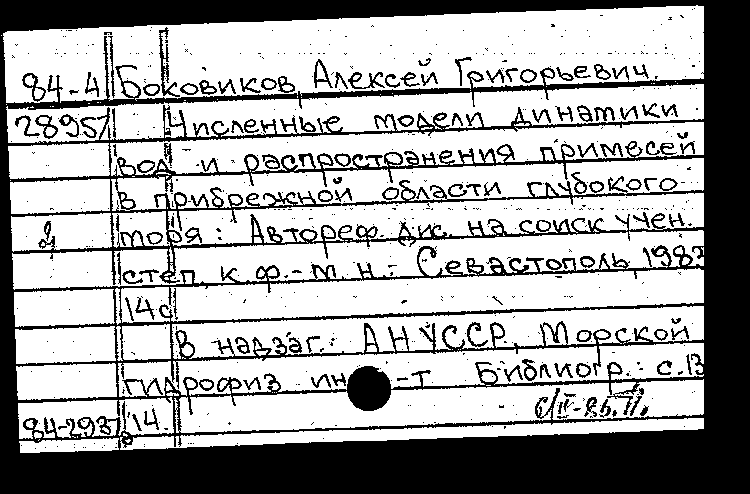 84-4 Боковиков, Алексей Григорьевич.
28957 Численные модели динамики
вод и распространения примесей
в прибрежной области глубокого
моря: Автореф. дис. на соиск учен.
степ. к.ф.-м.н.- Севастополь, 1983
14с
В надзаг.: АН УССР, Морской
гидрофиз ин-т Библиогр.: с.13
84-293 14.